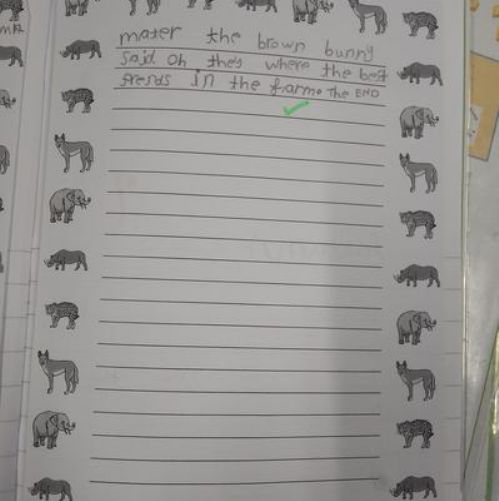 mater the brown bunny
said oh they where the best
frends in the farm. The END